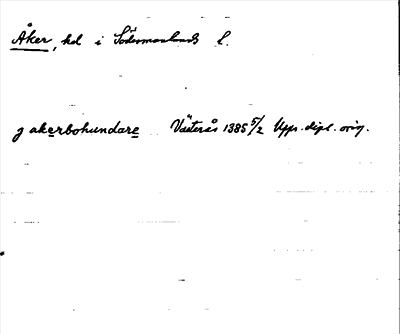 Åker, hd i Södermanlands l.
j akerbohundare Västerås 1385 5/2 Upps. dipl. orig.